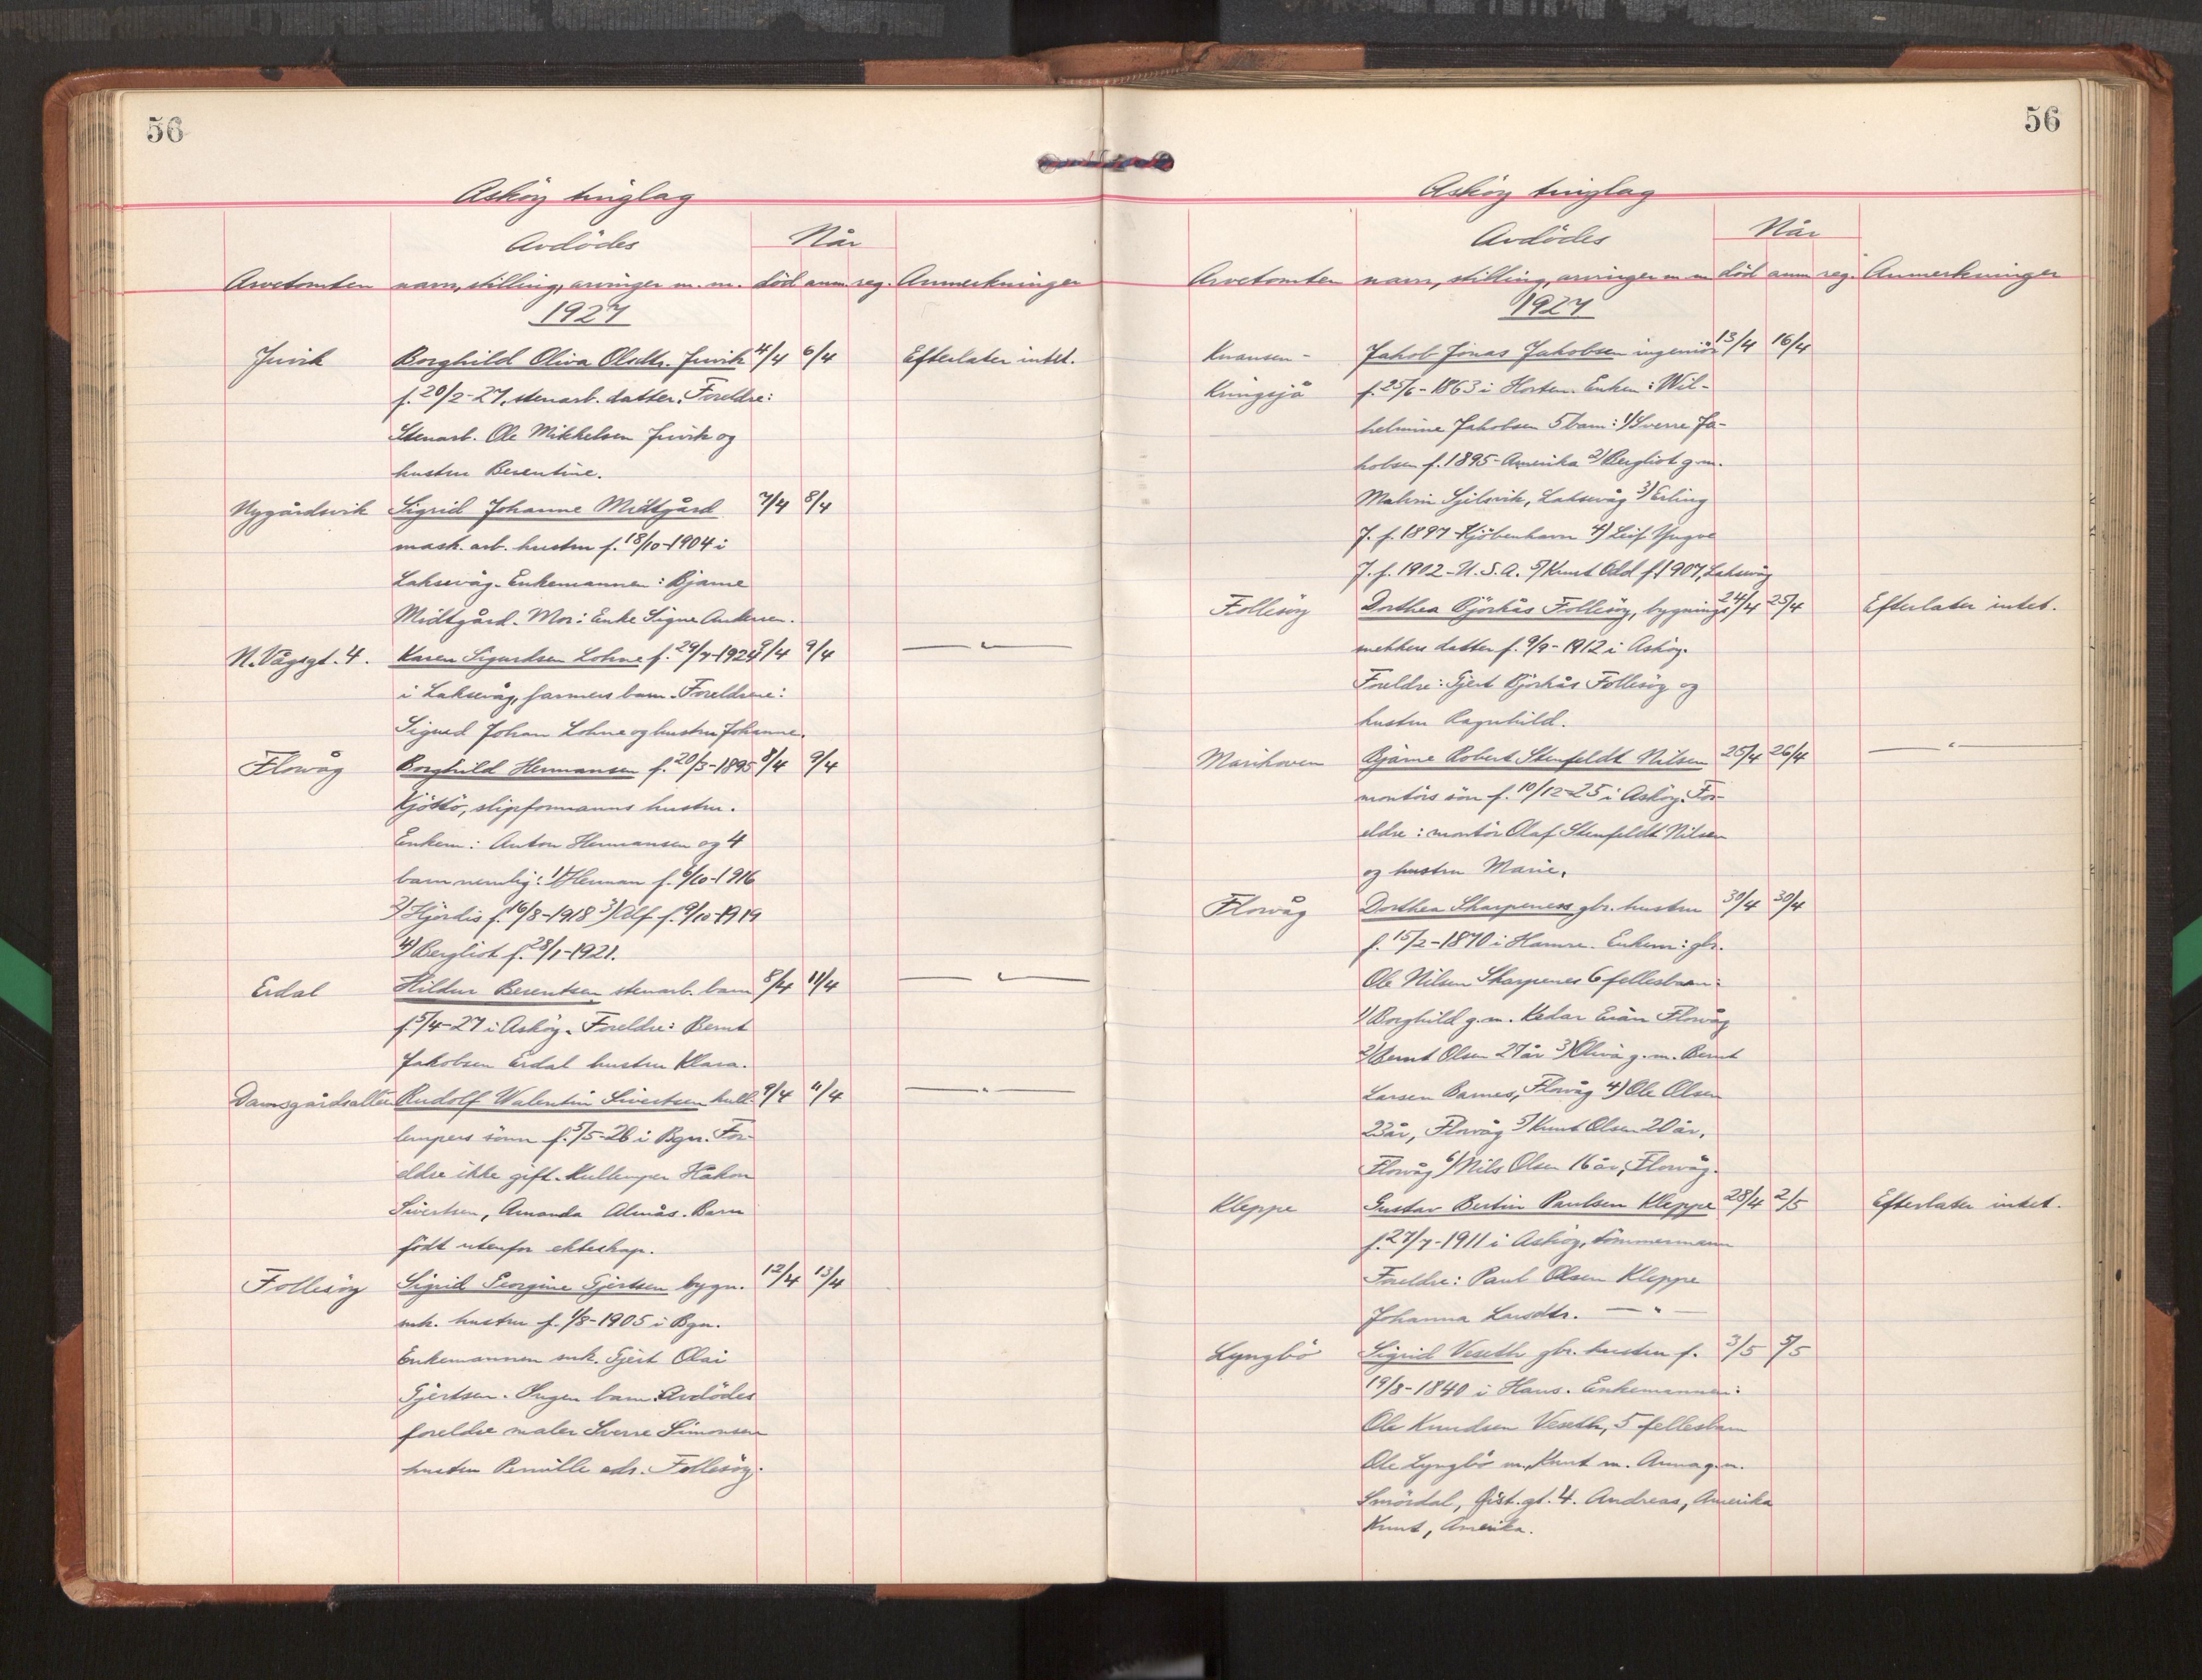 56
Asköy tinglag
Avdödes
Når
Arvetomten navn, stilling, arvinger m. m. död anm. reg. Anmerkninger
1927
Juvik Borghild Oliva Olsdtr. Juvik 4/4 6/4 Efterlater intet.
f. 20/2-27, stenarb. datter. Foreldre:
Stenarb. Ole Mikkelsen Juvik og
hustru Berentine.
Nygårdsvik Sigrid Johanne Midtgård 7/4 8/4
mask. arb. hustru f. 18/10-1904 i
Laksevåg. Enkemannen: Bjarne
Midtgård. Mor: Enke Signe Andersen.
N. Vågsgt. 4. Karen Sigurdsen Lohne f. 29/7-1924 9/4 — " —
i Laksevåg, farmers barn. Foreldrene:
Sigurd Johan Lohne og hustru Johanne.
Flowåg Borghild Hermansen f. 20/3-1895 8/4 9/4
Kjöttö, slipformanns hustru.
Enkem: Anton Hermansen og 4
barn nemlig: 1) Herman f. 6/10-1916
2) Hjördis f. 16/8-1918 3) Alf f. 9/10-1919
4) Bergliot f. 28/1-1921.
Erdal Hildur Berentsen stenarb. barn 8/4 11/4 — " —
f. 5/4-27 i Asköy. Foreldre: Bernt
Jakobsen Erdal hustru Klara.
Damsgårdsalleen Rudolf Walentin Sivertsen kull 9/4 11/4 — " —
lempers sönn f. 5/5-26 i Bgn. For-
eldre ikke gift. Kullemper Håkon
Sivertsen, Amanda Almås. Barn
födt utenfor ekteskap.
Follesöy Sigrid Georgine Gjertsen bygn. 12/4 13/4
snk. hustru f. 1/8-1905 i Bgn.
Enkemannen snk. Gjert Olai
Gjertsen. Ingen barn. Avdödes
foreldre maler Sverre Simonsen
hustru Pernille adr. Follesöy.
56
Asköy tinglag
Avdödes
Når
Arvetomten navn, stilling, arvinger m m död anm reg. Anmerkninger
1927
Knausen - Jakob Jonas Jakobsen ingeniör 13/4 16/4
Kringsjå f. 25/6-1863 i Horten. Enken: Wil-
helmine Jakobsen 5 barn: 1) Sverre Ja-
kobsen f. 1895- Amerika 2) Bergliot g.m.
Malvin Laksevåg 3) Erling
J. f. 1897 Kjöbenhavn 4) Leif Yngve
J. f. 1902 - U. S. A. 5) Knut Odd f. 1907, Laksevåg
Follesöy Dorthea Björkås Follesöy, bygnings 24/4 25/4 Efterlater intet.
snekkers datter f. 9/9-1912 i Asköy.
Foreldre: Gjert Björkås Follesöy og
hustru Ragnhild.
Marikoven Bjarne Robert Stenfeldt Nilsen 25/4 26/4 — " —
montörs sön f. 10/12-25 i Asköy. For-
eldre: montör Olaf Stenfeldt Nilsen
og hustru Marie.
Flowåg Dorthea Skarpenes gbr. hustru 30/4 30/4
f. 15/2-1870 i Hamre. Enkem: gbr.
Ole Nilsen Skarpenes 6 fellesbarn:
1) Borghild g. m. Flowåg
2) Bernt Olsen 27 år 3) Oliva g. m. Bernt
Larsen Flowåg 4) Ole Olsen
23 år, Flowåg 5) Knut Olsen 20 år,
Flowåg 6) Nils Olsen 16 år, Flowåg.
Kleppe Gustav Bertin Paulsen Kleppe 28/4 2/5 Efterlater intet.
f. 27/7-1911 i Asköy, tömmermann
Foreldre: Paul Olsen Kleppe
Johanna Larsdtr. — " —
Lyngbö Sigrid Veseth gbr. hustru f. 3/5 5/5
19/8-1840 i Haus. Enkemannen:
Ole Knudsen Veseth, 5 fellesbarn
Ole Lyngbö m. Knut m. Anna g.m.
Smördal, gt. 4. Andreas, Amerika
Knut, Amerika.